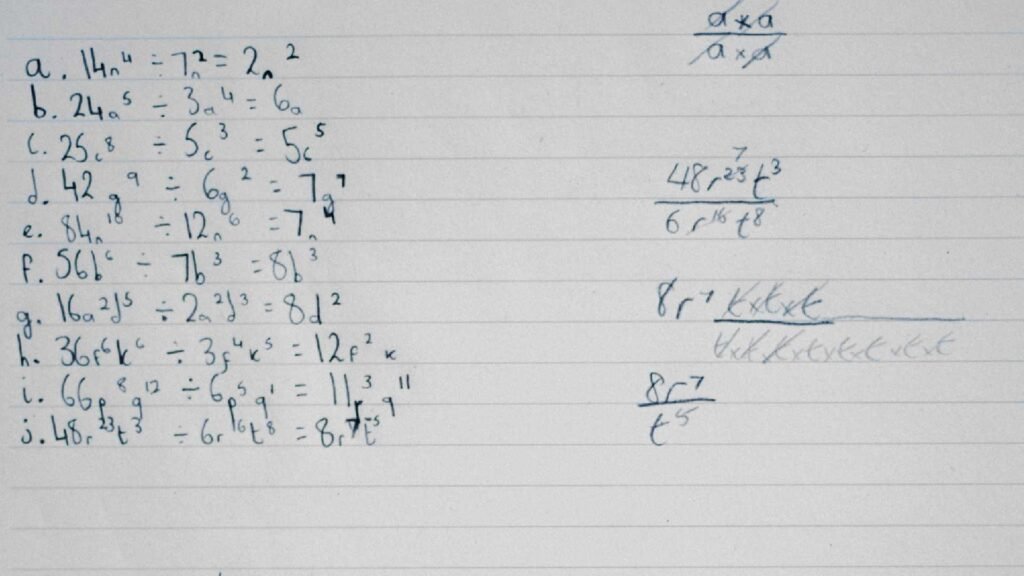 a. 14n⁴ ÷ 7n² = 2n²
b. 24a⁵ ÷ 3a⁴ = 6a
c. 25c⁸ ÷ 5c³ = 5c⁵
d. 42g⁹ ÷ 6g² = 7g⁷
e. 84n¹⁰ ÷ 12n⁶ = 7n⁴
f. 56b⁶ ÷ 7b³ = 8b³
g. 16a²d⁵ ÷ 2a²d³ = 8d²
h. 36f⁶k⁶ ÷ 3f⁴k⁵ = 12f²k
i. 66p⁸q¹² ÷ 6p⁵q¹ = 11p³q¹¹
j. 48r²³t³ ÷ 6r¹⁶t⁸ = 8r⁷t⁻⁵
a × a
a × a
7
48r²³t³
6r¹⁶t⁸
8r⁷ t×t×t
t×t×t×t×t×t×t×t
8r⁷
t⁵